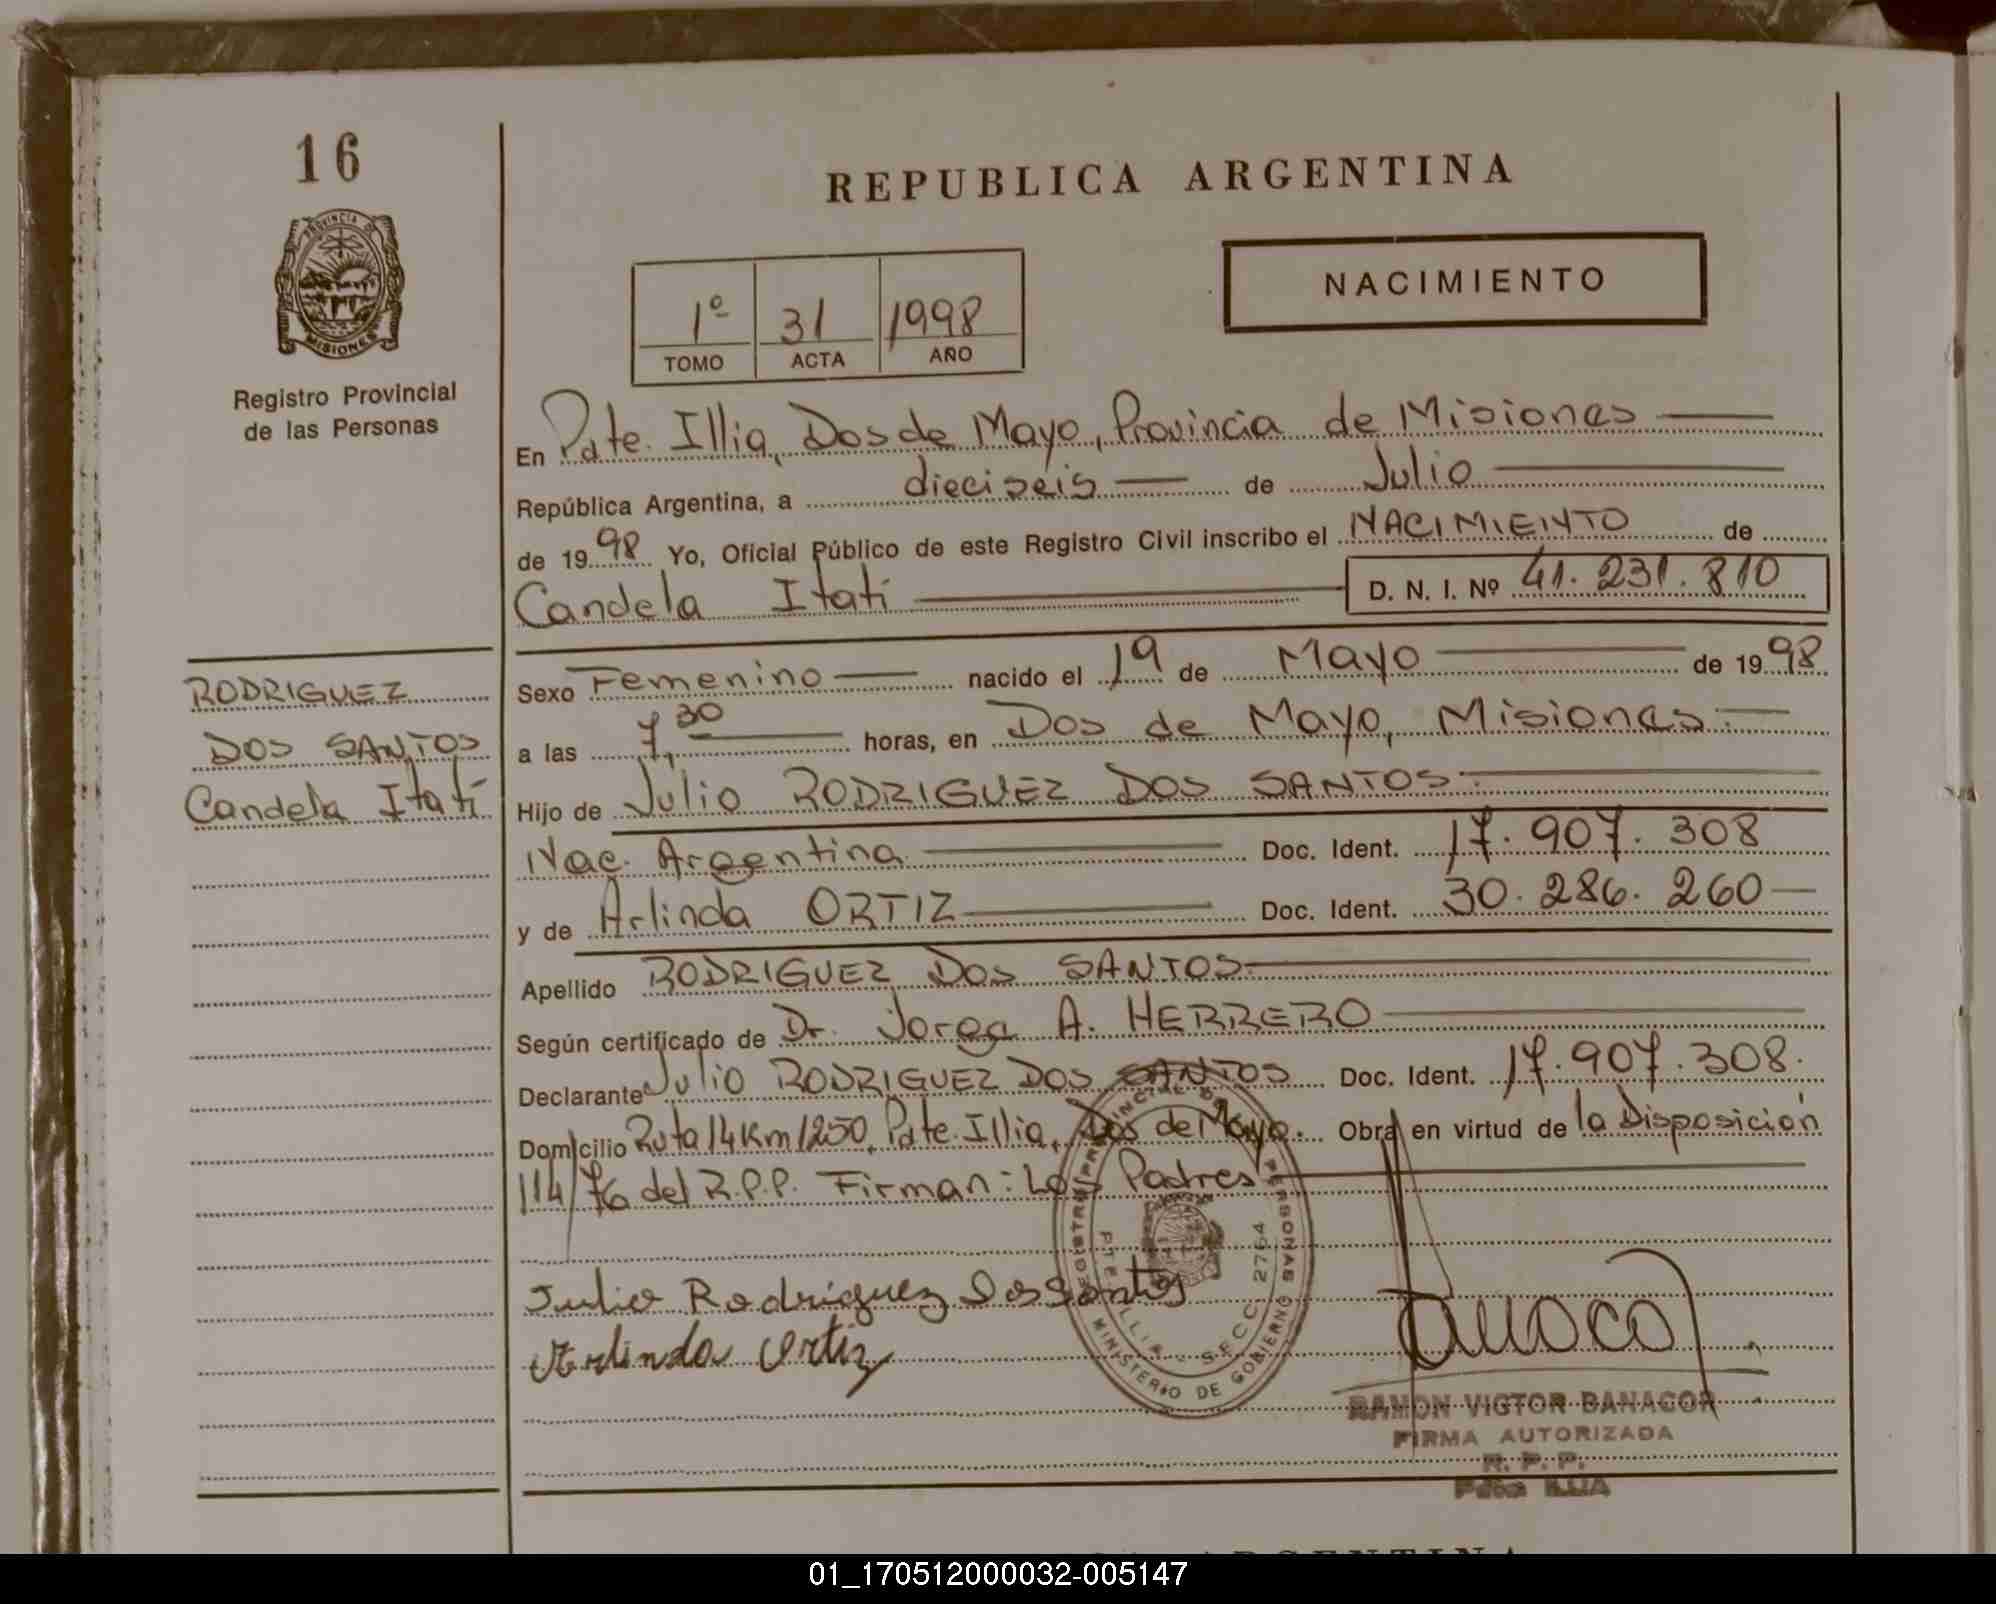 16
PROVINCIA DE
MISIONES
Registro Provincial
de las Personas
RODRIGUEZ
DOS SANTOS
Candela Itatí
REPUBLICA ARGENTINA
NACIMIENTO
1º 31 1998
TOMO ACTA AÑO
En Pdte. Illia, Dos de Mayo, Provincia de Misiones
República Argentina, a dieciseis de Julio
de 1998 Yo, Oficial Público de este Registro Civil inscribo el NACIMIENTO de
Candela Itatí D. N. I. Nº 41.231.810
Sexo Femenino nacido el 19 de Mayo de 1998
a las 7,30 horas, en Dos de Mayo, Misiones.
Hijo de Julio RODRIGUEZ DOS SANTOS.
Nac. Argentina Doc. Ident. 17.907.308
y de Arlinda ORTIZ Doc. Ident. 30.286.260
Apellido RODRIGUEZ DOS SANTOS
Según certificado de Dr. Jorge A. HERRERO
Declarante Julio RODRIGUEZ DOS SANTOS Doc. Ident. 17.907.308.
Domicilio Ruta 14 Km 1250, Pdte. Illia, Dos de Mayo. Obra en virtud de la Disposición
114/76 del R.P.P. Firman: Los Padres
REGISTRO PROVINCIAL DE PERSONAS
PTE. ILLIA - SECC. 2764
MINISTERIO DE GOBIERNO
Julio Rodriguez Dos Santos
Arlinda Ortiz
RAMON VICTOR BANACOR
FIRMA AUTORIZADA
R. P. P.
Pdte ILLIA
01_170512000032-005147